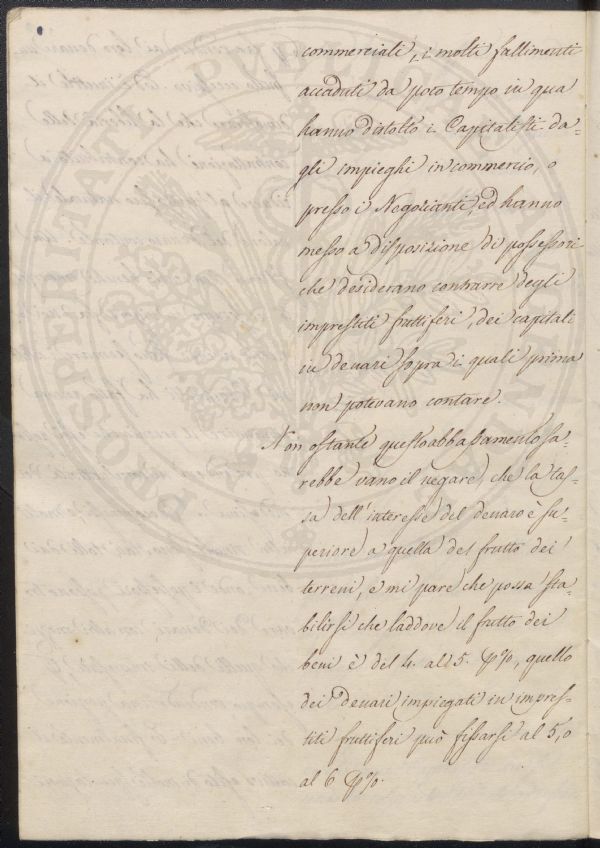 commerciali, i molti fallimenti
accaduti da poco tempo in qua
hanno distolto i Capitalisti da-
gli impieghi in commercio, o
presso i Negozianti, ed hanno
messo a disposizione di possessori
che desiderano contrarre degli
imprestiti fruttiferi, dei capitali
in denari sopra i quali prima
non potevano contare.
Non ostante questo abbassamento sa-
rebbe vano il negare, che la tas-
sa dell'interesse del denaro è su-
periore a quella del frutto dei
terreni, e mi pare che possa sta-
bilirsi che laddove il frutto dei
beni è del 4. al 5. p%, quello
dei denari impiegati in impres-
titi fruttiferi può fissarsi al 5, o
al 6 p%.